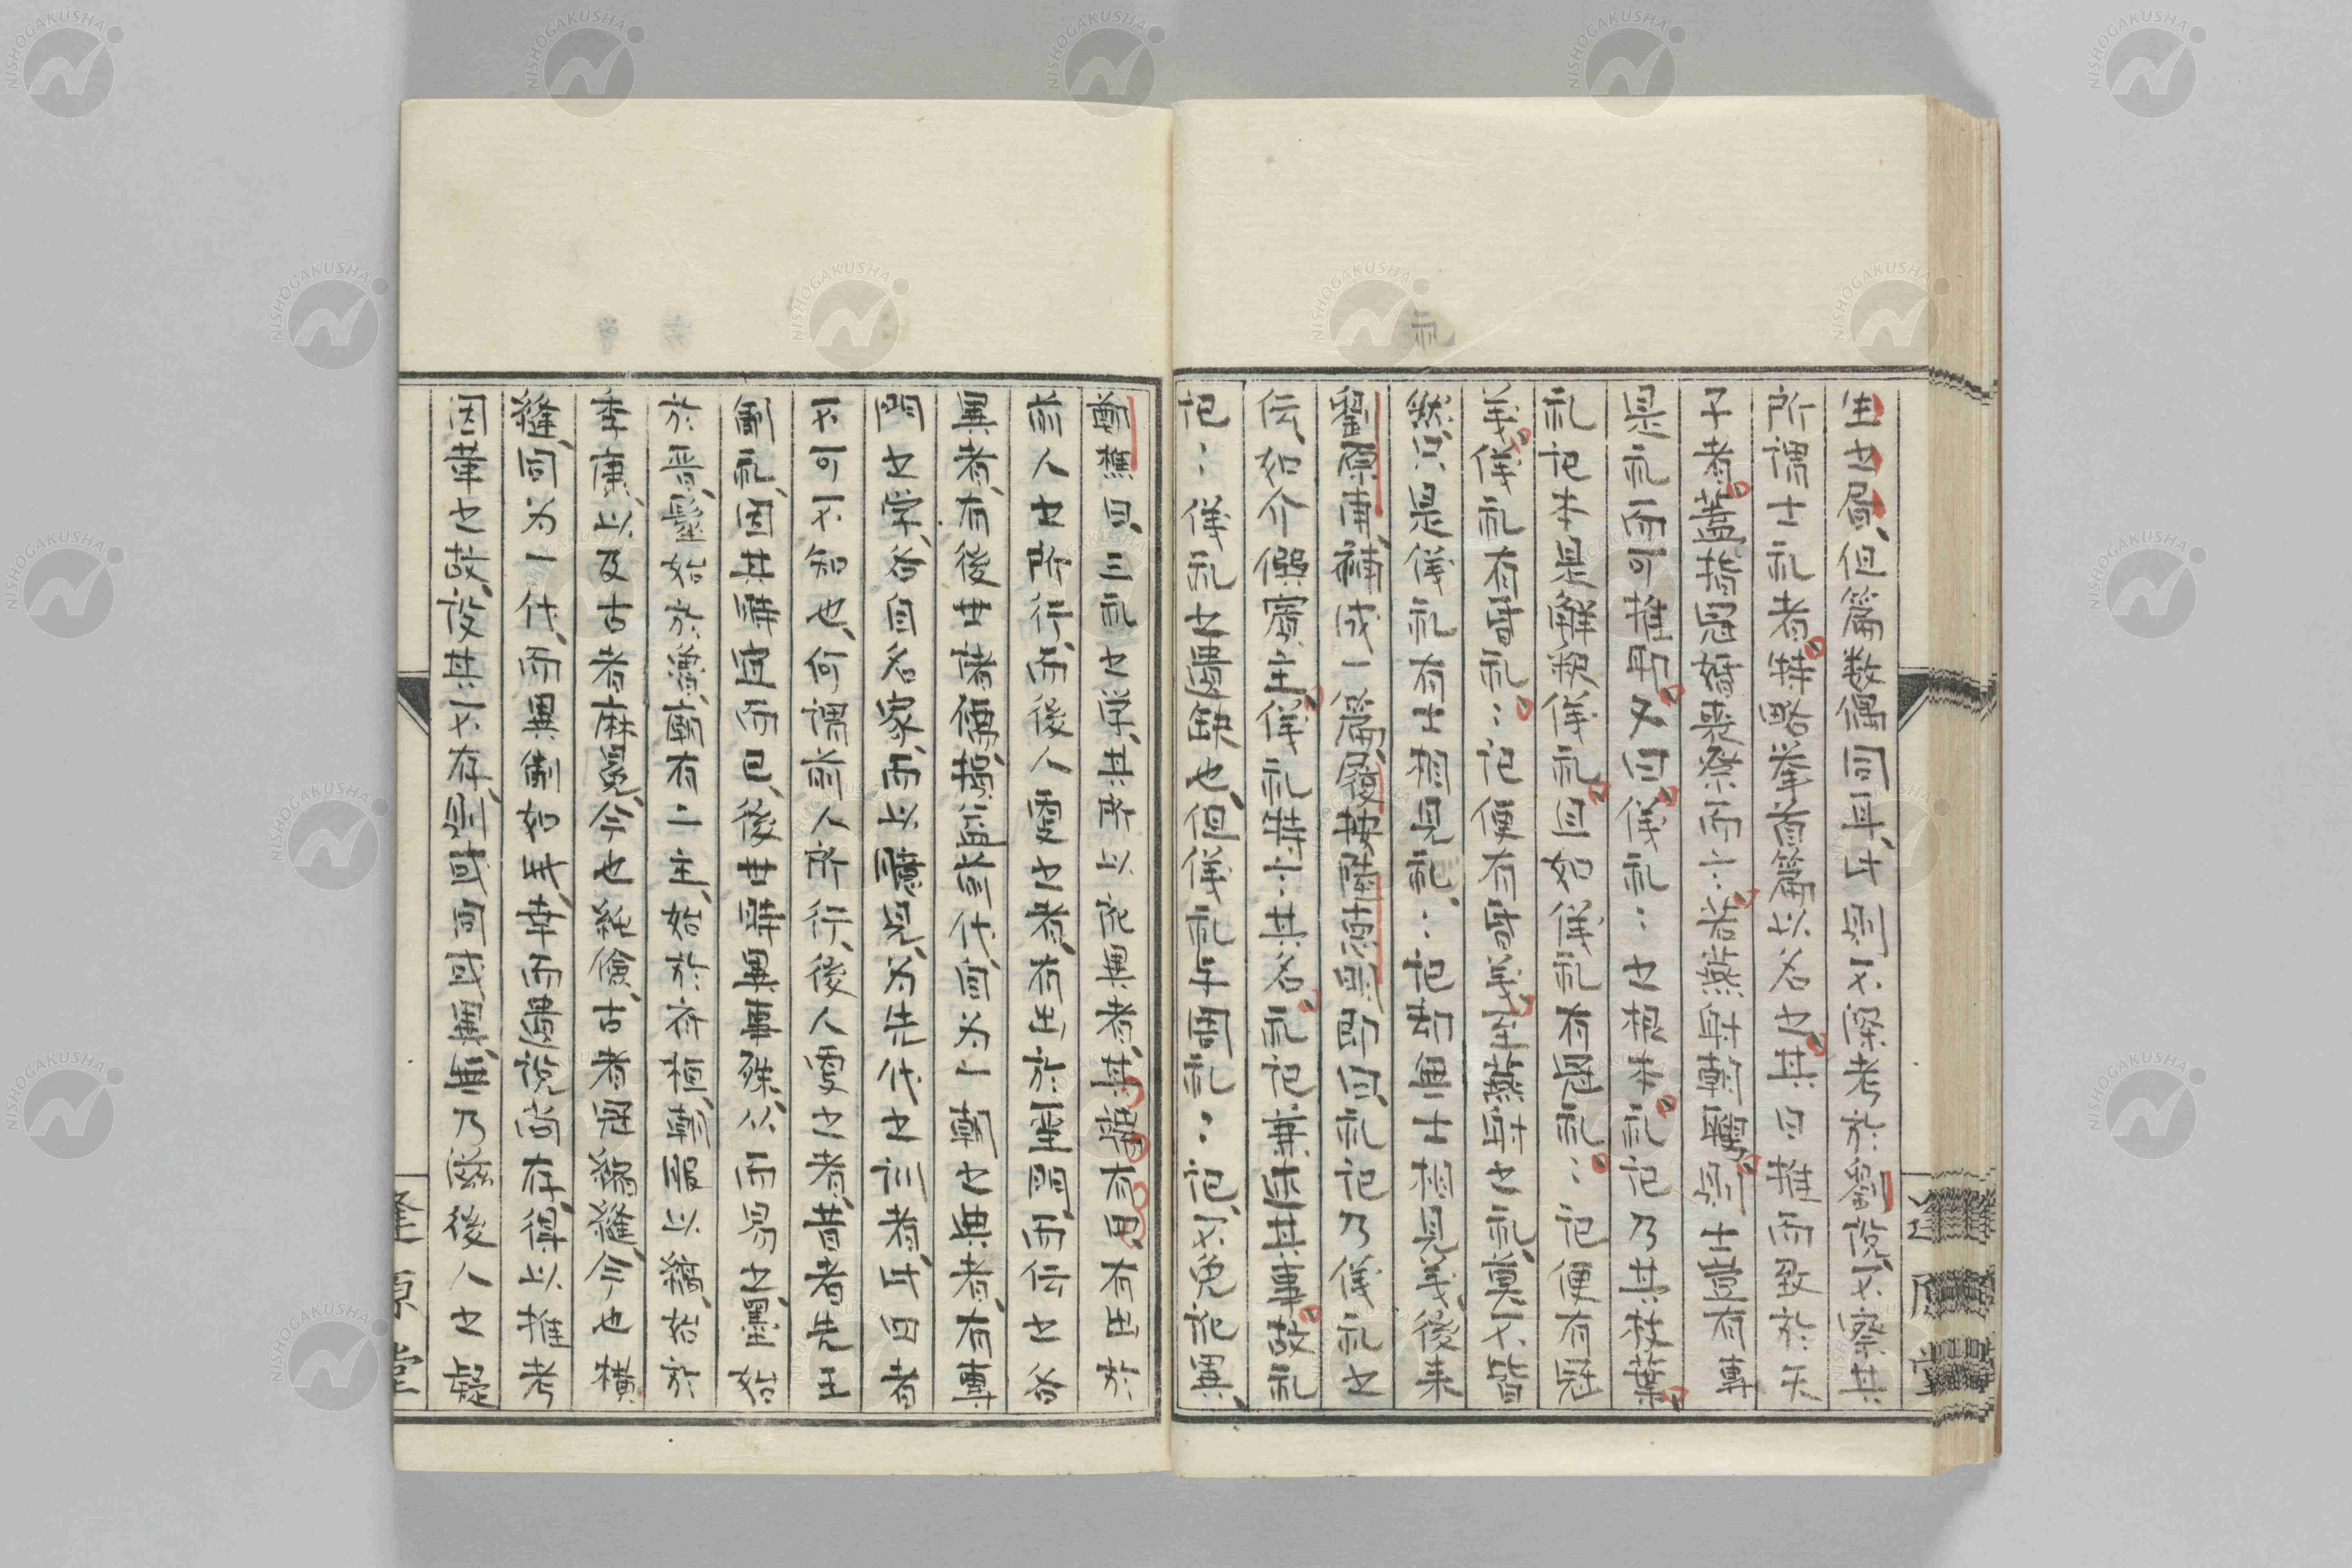 生之屬、但篇数偶同耳、此則不深考於劉説、不察其
所謂士礼者特略挙首篇以名之其曰推而致於天
子者蓋指冠婚喪祭而言若燕射朝聘則士豈有専
是礼而可推耶又曰儀礼〻之根本礼記乃其枝葉
礼記本是解釈儀礼且如儀礼有冠礼〻記便有冠
義儀礼有昏礼〻記便有昏義至燕射之礼、莫不皆
然、只是儀礼有士相見礼、〻記却無士相見義、後来
劉原甫、補成一篇、履按陸徳明即曰、礼記乃儀礼之
伝、如介僎賓主、儀礼特言其名礼記兼述其事故礼
記〻儀礼之遺缺也、但儀礼与周礼〻記、不免犯異、
鄭樵曰、三礼之学、其所以訛異者、其端有四有出於
前人之所行、而後人更之者、有出於聖門、而伝之各
異者、有後世諸儒、損益前代、自為一朝之典者、有専
門之学、各自名家、而以臆見、為先代之訓者、此四者
不可不知也、何謂前人所行、後人更之者、昔者先王
制礼、因其時宜而已、後世時異事殊、从而易之、墨始
於晋、髽始於魯、廟有二主、始於斉桓、朝服以縞、始於
季康、以及古者麻冕、今也純倹、古者冠縮縫、今也横
縫、同為一代、而異制如此、幸而遺説尚存、得以推考
因革之故、設其不存、則或同或異、無乃滋後人之疑
逢原堂